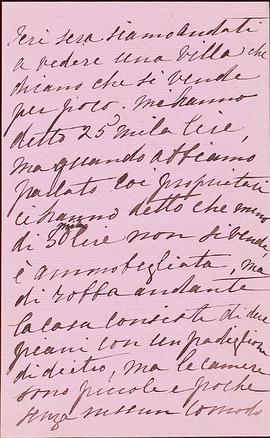 Ieri sera siamo andati
a vedere una villa che
dicano che si vende
per poco. mi hanno
detto 25 mila lire,
ma quando abbiamo
parlato coi proprietari
ci hanno detto che meno
di 30 mila lire non si vende,
è ammobigliata, ma
di roba andante
la casa consiste di due
piani con un padiglione
di dietro, ma le camere
sono piccole e poche
senza nissun comodo